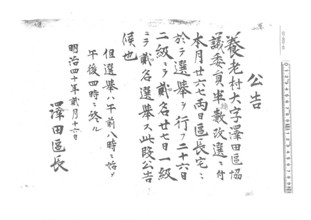 公告
養老村大字澤田區協
議委員半數改選ニ付
本月廿六七両日區長宅ニ
於テ選擧ヲ行フ二十六日
二級ニテ貳名廿七日一級
ニテ貳名選擧ス此段公告
候也
但選擧ハ午前八時ニ始メ
午後四時ニ終ル
明治四十年貳月十六日
澤田區長